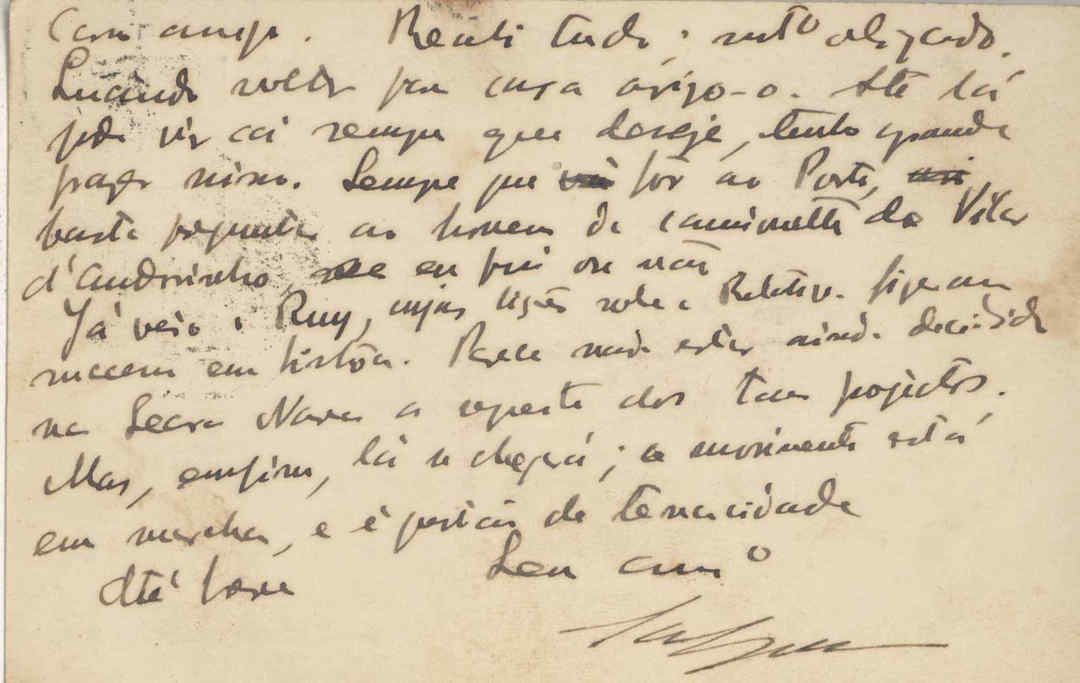 Caro amigo. Recebi tudo; mtº obrigado.
Quando voltar para casa aviso-o. Até lá
pode vir cá sempre que deseje, tenho grande
prazer nisso. Sempre que fôr ao Porto,
basta perguntar ao homem da camionette de Vilar
d'Andorinho, se eu fui ou não
Já veio o Ruy, cujas lições sobre a Relativ. fizeram
sucesso em Lisbôa. Parece nada estar ainda decidido
na Seara Nova a respeito dos taes projectos.
Mas, emfim, lá se chegará; o movimento está
em marcha, e é questão de tenacidade
Até breve Seu amº